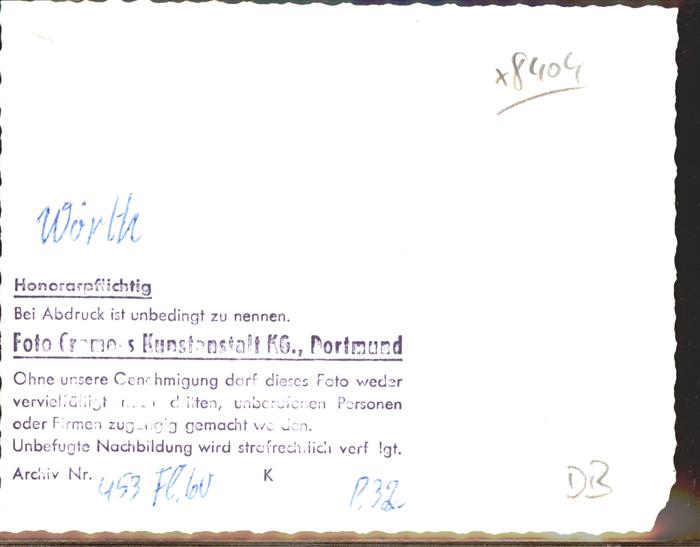 x8404
Wörth
Honorarpflichtig
Bei Abdruck ist unbedingt zu nennen.
Foto Cramers Kunstanstalt KG., Dortmund
Ohne unsere Genehmigung darf dieses Foto weder
vervielfältigt noch dritten, unberufenen Personen
oder Firmen zugängig gemacht werden.
Unbefugte Nachbildung wird strafrechtlich verfolgt.
Archiv Nr. 453 Fl. 60 K P.32
DB